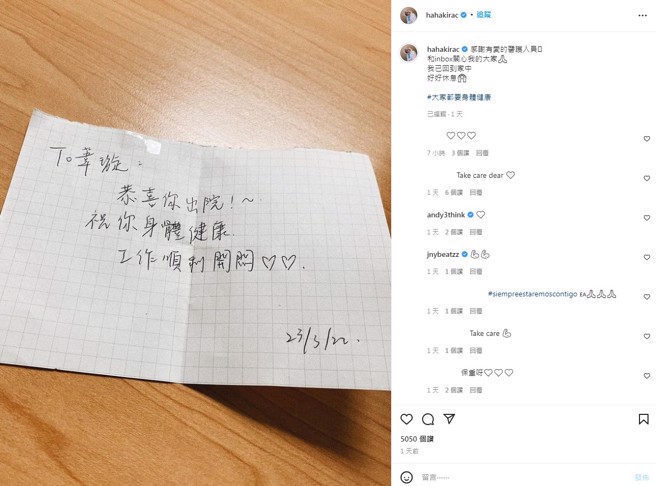 To 葦璇：
恭喜你出院！～
祝你身體健康
工作順利 開開♡♡.
23/3/22.
hahakirac • 追蹤
hahakirac 感謝有愛的醫護人員
和inbox關心我的大家🙏
我已回到家中
好好休息
#大家都要身體健康
已編輯 · 1 天
♡♡♡
7 小時 3 個讚 回覆
Take care dear ♡
1 天 6 個讚 回覆
andy3think ♡
1 天 2 個讚 回覆
jnybeatzz 💪💪
1 天 1 個讚 回覆
#siempreestaremoscontigo EA🙏🙏🙏
1 天 1 個讚 回覆
Take care 💪
1 天 1 個讚 回覆
保重呀♡♡♡
1 天 2 個讚 回覆
5050 個讚
1 天前
留言⋯⋯ 發佈